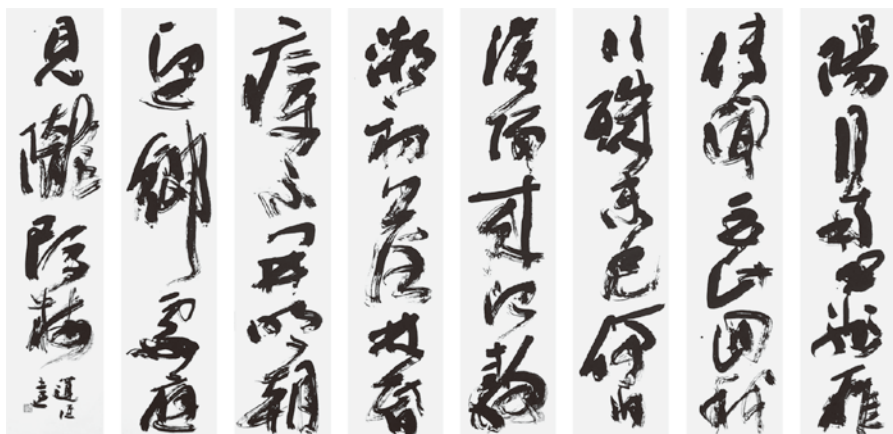 陽月南飛雁
傳聞至此回我
行殊未已何日
復歸來江靜
潮初落林昏
瘴不開明朝
望鄉處應
見隴頭梅